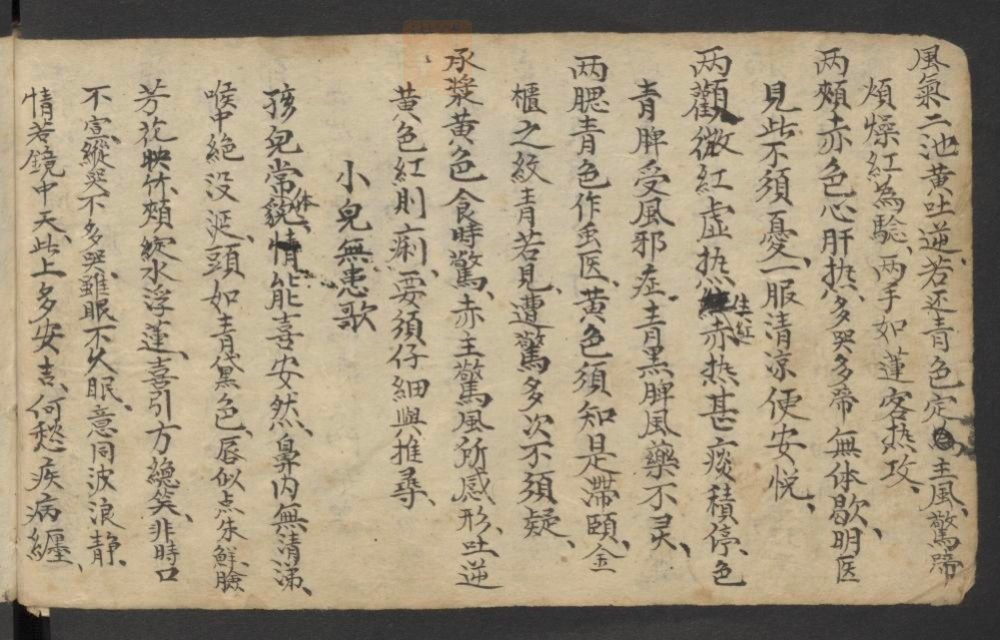 風氣二池黃吐逆、若还青色定主風、驚啼
煩燥紅為驗、两手如蓮客热攻、
两頰赤色心肝热、多哭多啼無体歇、明医
見此不須憂、一服清凉便安悦、
两顴微紅虚热生、赤热甚痰積停、色
青脾受風邪症、青黑脾風藥不灵、
两腮青色作虫医、黃色須知是滯頤、金
櫃之紋青若見、遭驚多次不須疑、
承漿黃色食時驚、赤主驚風所感形、吐逆
黃色紅則痢、要須仔細與推尋、
小皃無患歌
孩皃常体貌、情能喜安然、鼻内無清涕、
喉中絶没涎、頭如青黛黑色、唇似点朱鮮、臉
芳花映竹、頰綻水浮蓮、喜引方總笑、非時口
不宣、縱哭不多哭、雖眠不久眠、意同波浪静、
情若鏡中天、此上多安吉、何愁疾病纏、